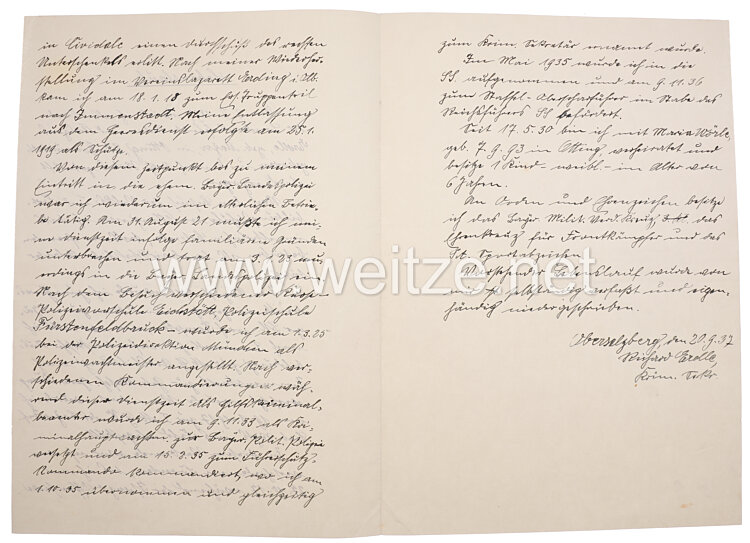 in Cividale einen Durchschuß des rechten
Unterschenkels erlitt. Nach meiner Wiederher-
stellung im Vereinslazarett Erding i. Ob.
kam ich am 18.1.18 zum Ers. Truppenteil
nach Immenstadt. Meine Entlassung
aus dem Heeresdienst erfolgte am 25.1.
1919 als Schütze.
Von diesem Zeitpunkt bis zu meinem
Eintritt in die ehem. Bayer. Landespolizei
war ich wiederum im elterlichen Betrie-
be tätig. Am 31. August 21 mußte ich mei-
ne Dienstzeit infolge familiären Gründen
unterbrechen und trat am 3.1.23 neu-
erdings in die Bayer. Landespolizei ein.
Nach dem Besuch verschiedener Kurse -
Polizeivorschule Eichstätt, Polizeischule
Fürstenfeldbruck - wurde ich am 1.3.25
bei der Polizeidirektion München als
Polizeiwachtmeister angestellt. Nach ver-
schiedenen Kommandierungen wäh-
rend dieser Dienstzeit als Hilfskriminal-
beamter wurde ich am 9.11.33 als Kri-
minalhauptwachtm. zur Bayer. Polit. Polizei
versetzt und am 15.2.35 zum Führerschutz-
kommando kommandiert, wo ich am
1.10.35 übernommen und gleichzeitig
zum Krim. Sekretär ernannt wurde.
Im Mai 1935 wurde ich in die
SS. aufgenommen und am 9.11.36
zum Staffel-Oberscharführer im Stabe des
Reichsführers SS befördert.
Seit 17.5.30 bin ich mit Maria Wörle,
geb. 7.9.93 in Otting verheiratet und
besitze 1 Kind - weibl. - im Alter von
6 Jahren.
An Orden und Ehrenzeichen besitze
ich das Bayer. Milit. Verd. Kreuz, das
Ehrenkreuz für Frontkämpfer und das
SA. Sportabzeichen.
Vorstehender Lebenslauf wurde von
mir selbst abgefaßt und eigen-
händig niedergeschrieben.
Obersalzberg, den 20.9.37
Richard Erdle
Krim. Sekr.
www.weitze.net